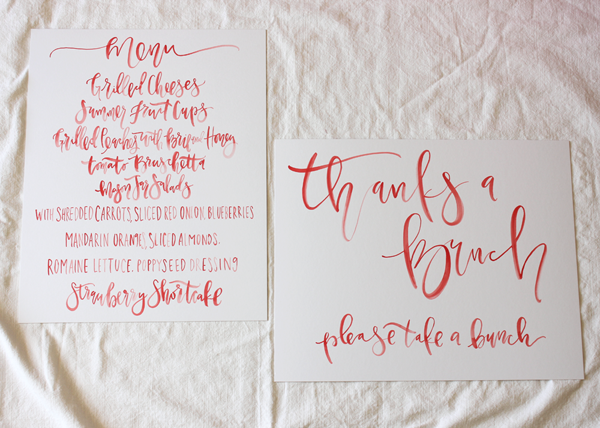 menu
Grilled Cheeses
Summer Fruit Cups
Grilled Peaches with Brie and Honey
tomato Bruschetta
Mason Jar Salads
WITH SHREDDED CARROTS, SLICED RED ONION, BLUEBERRIES
MANDARIN ORANGES, SLICED ALMONDS,
ROMAINE LETTUCE, POPPYSEED DRESSING
Strawberry Shortcake
thanks a
Brunch
please take a bunch